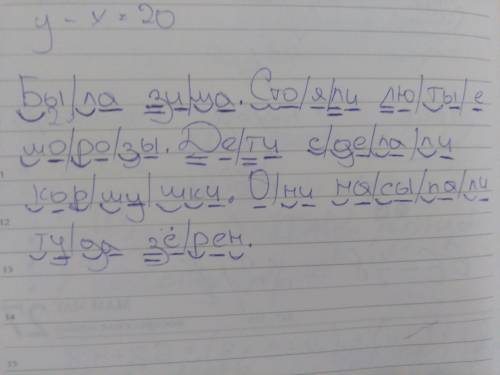 y - x = 20
Бы/ла зи/ма. Сто/я/ли лю/ты/е
мо/ро/зы. Де/ти с/де/ла/ли
кор/му/шки. О/ни на/сы/па/ли
ту/да зё/рен.